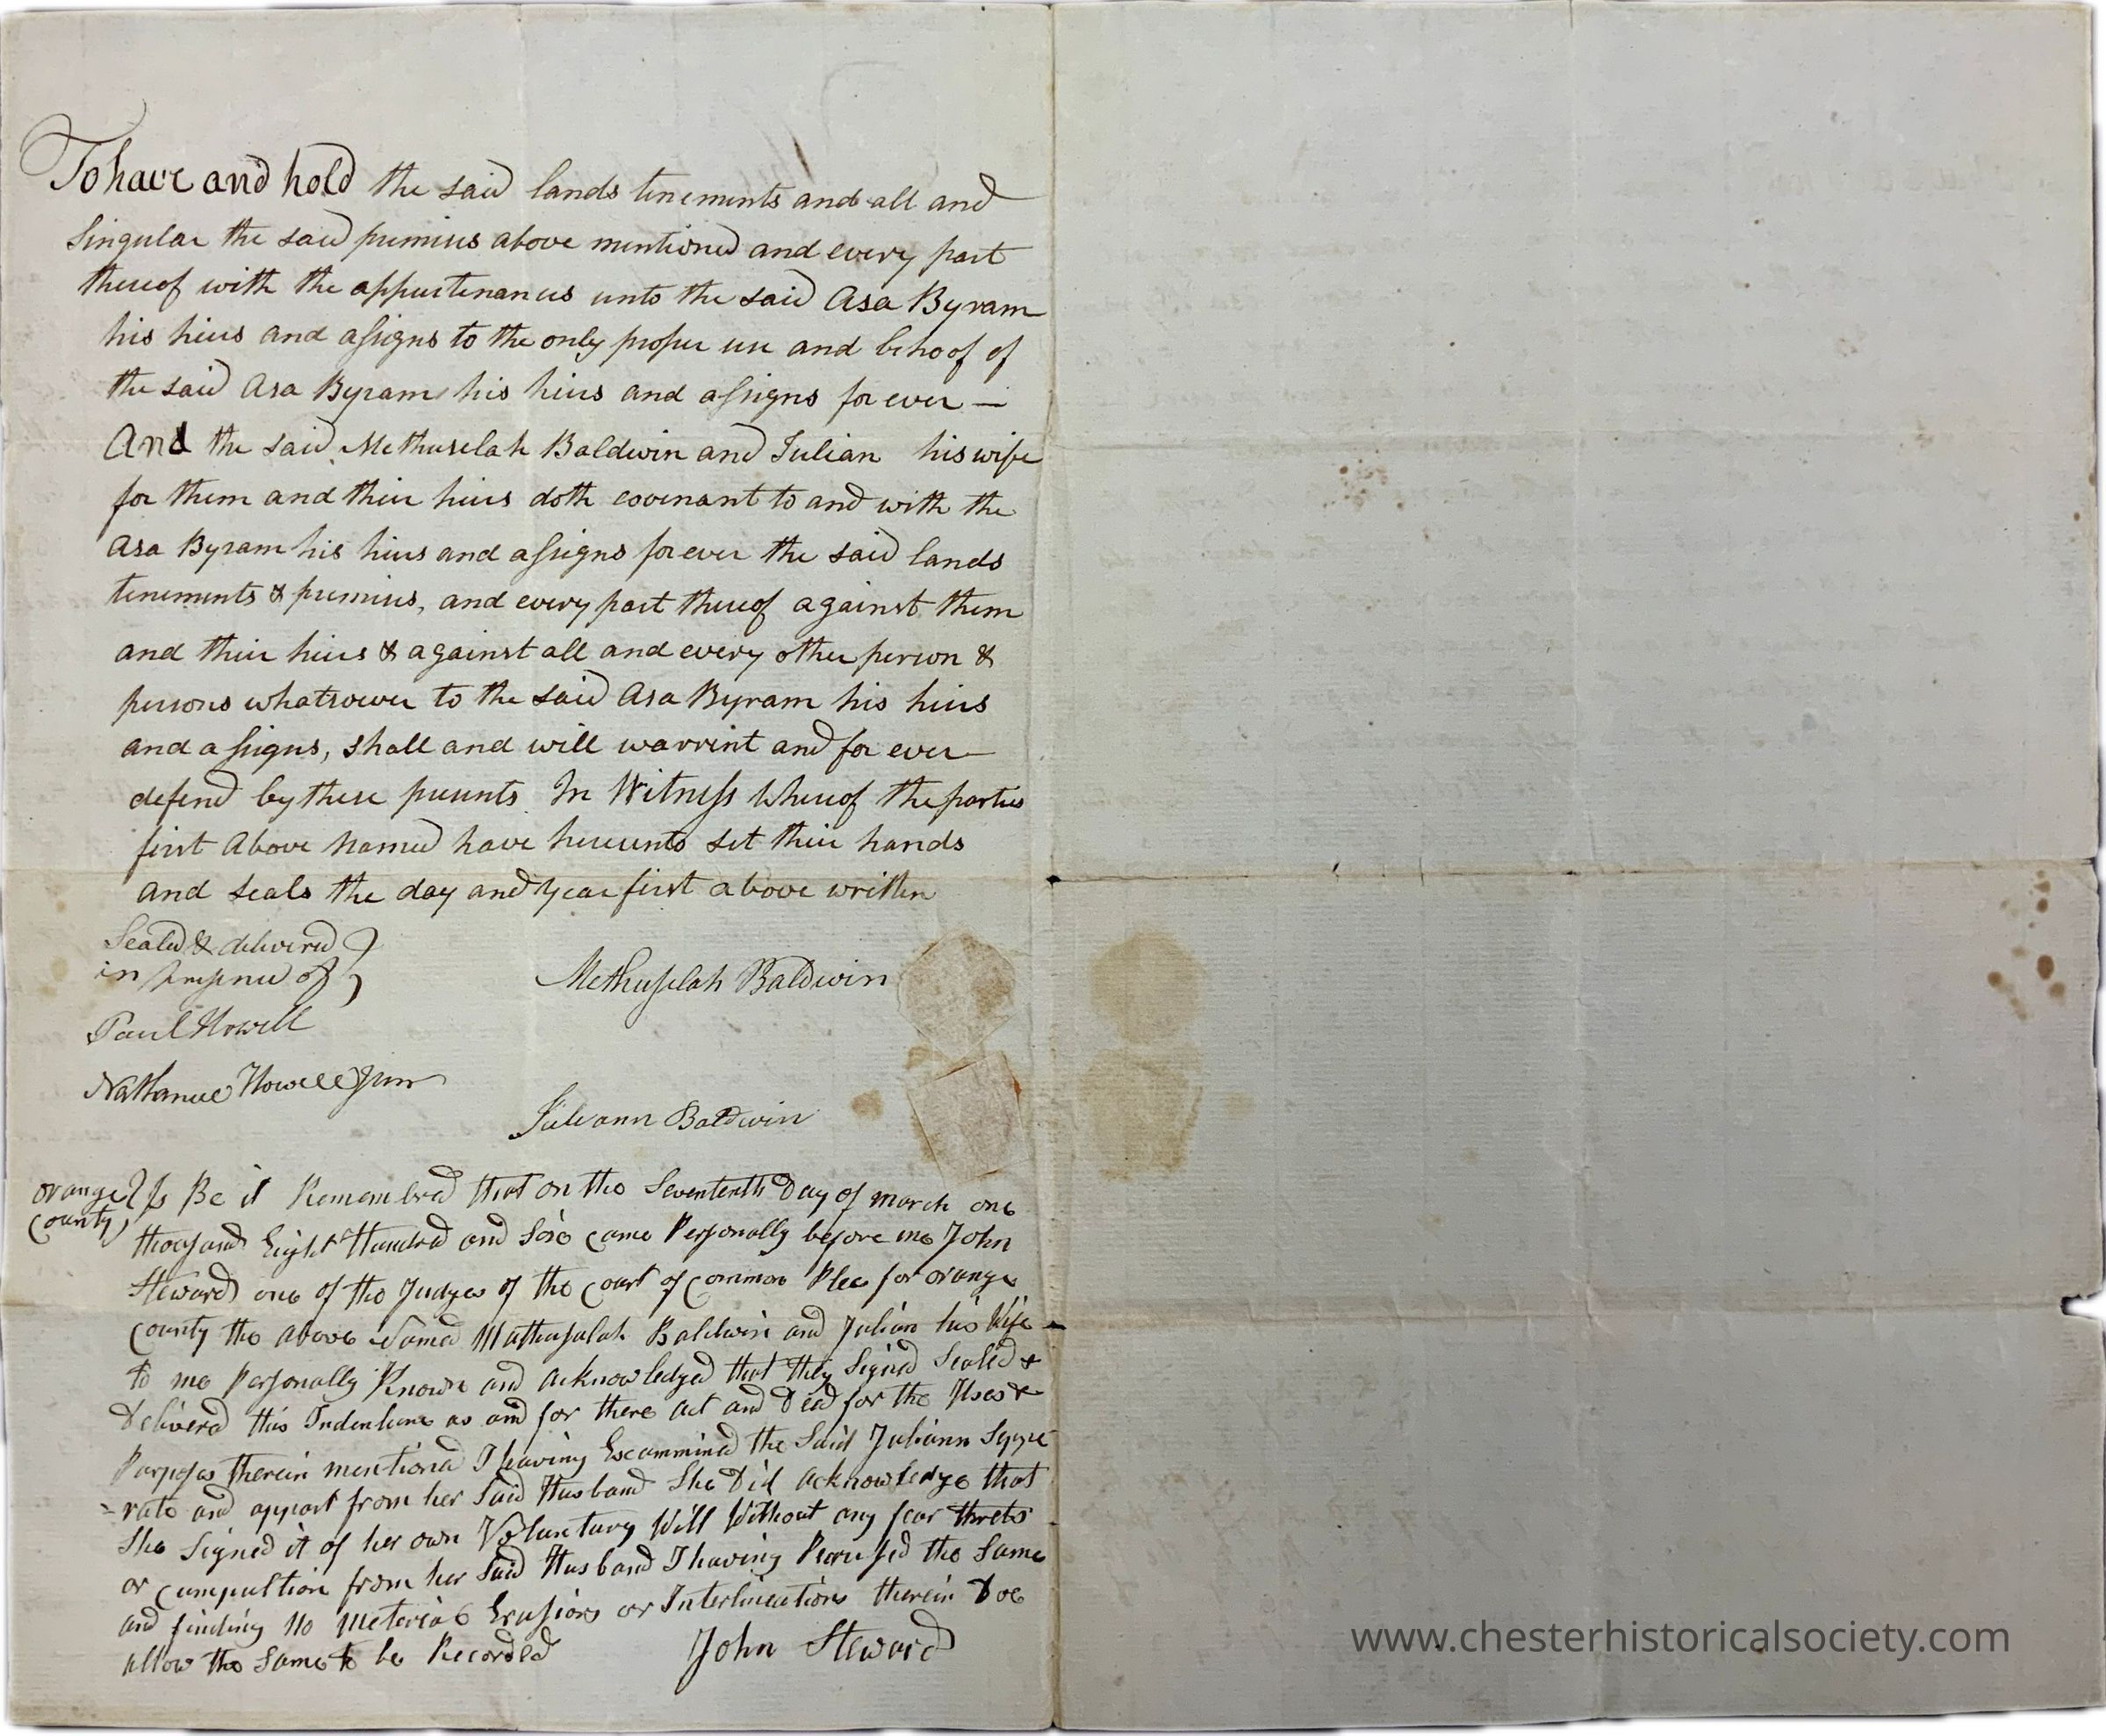 To have and hold the said lands tenements and all and
Singular the said premises above mentioned and every part
thereof with the appurtenances unto the said Asa Byram
his heirs and assigns to the only proper use and behoof of
the said Asa Byram his heirs and assigns for ever —
And the said Methuselah Baldwin and Julian his wife
for them and their heirs doth covenant to and with the
Asa Byram his heirs and assigns for ever the said lands
tenements & premises, and every part thereof against them
and their heirs & against all and every other person &
persons whatsoever to the said Asa Byram his heirs
and assigns, shall and will warrint and for ever
defend by these presents In Witness Whereof the parties
first Above Named have hereunto set their hands
and seals the day and year first above written
Sealed & delivered
in presence of
Paul Howell
Methuselah Baldwin
Nathaniel Howell Junr
Juliann Baldwin
Orange County } Ss Be it Remembred that on the Sevententh Day of march one
thousand Eight Hundred and Six came Personally before me John
Steward one of the Judges of the Court of Common Pleas for orange
County the above Named Mathusalah Baldwin and Julian his Wife
to me Personally Known and acknowledged that they Signed Sealed &
Delivered this Indenture as and for there act and Deed for the Uses &
Purposes therein mentiond I having Excammined the Said Juliann Seppe
=rate and appart from her Said Husband She Did acknowledge that
She Signed it of her own Voluntary Will Without any fear threts
or compultion from her Said Husband I having Perused the Same
and finding no Meterial Erasions or Interlineations therein Doe
allow the Same to be Recorded John Steward
www.chesterhistoricalsociety.com